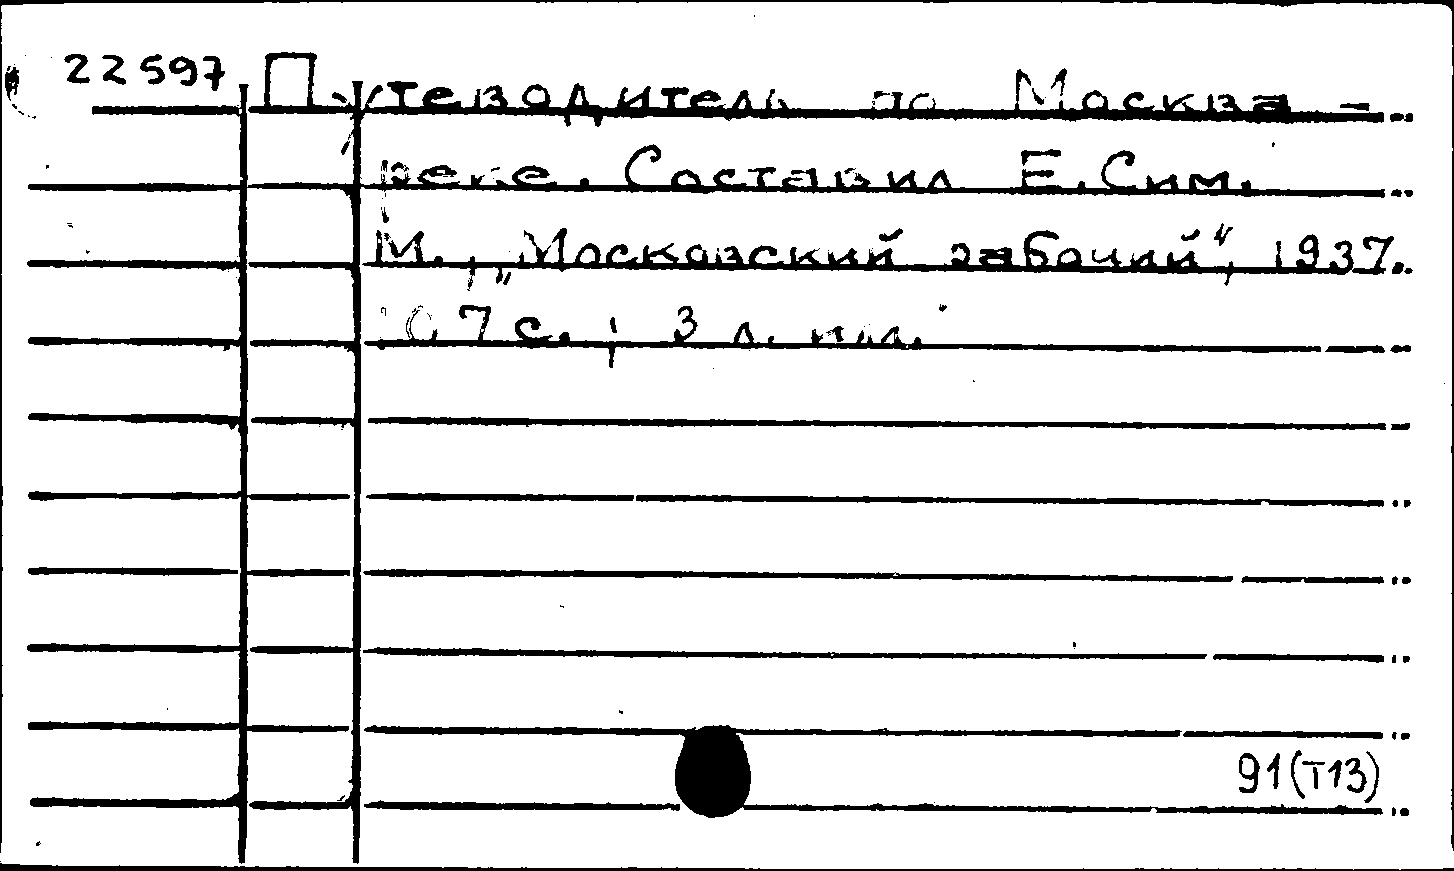 22597 Путеводитель по Москва-
реке. Составил Е. Сим.
М., „Московский рабочий“, 1937.
с.; 3 л. илл.
91(Т13)